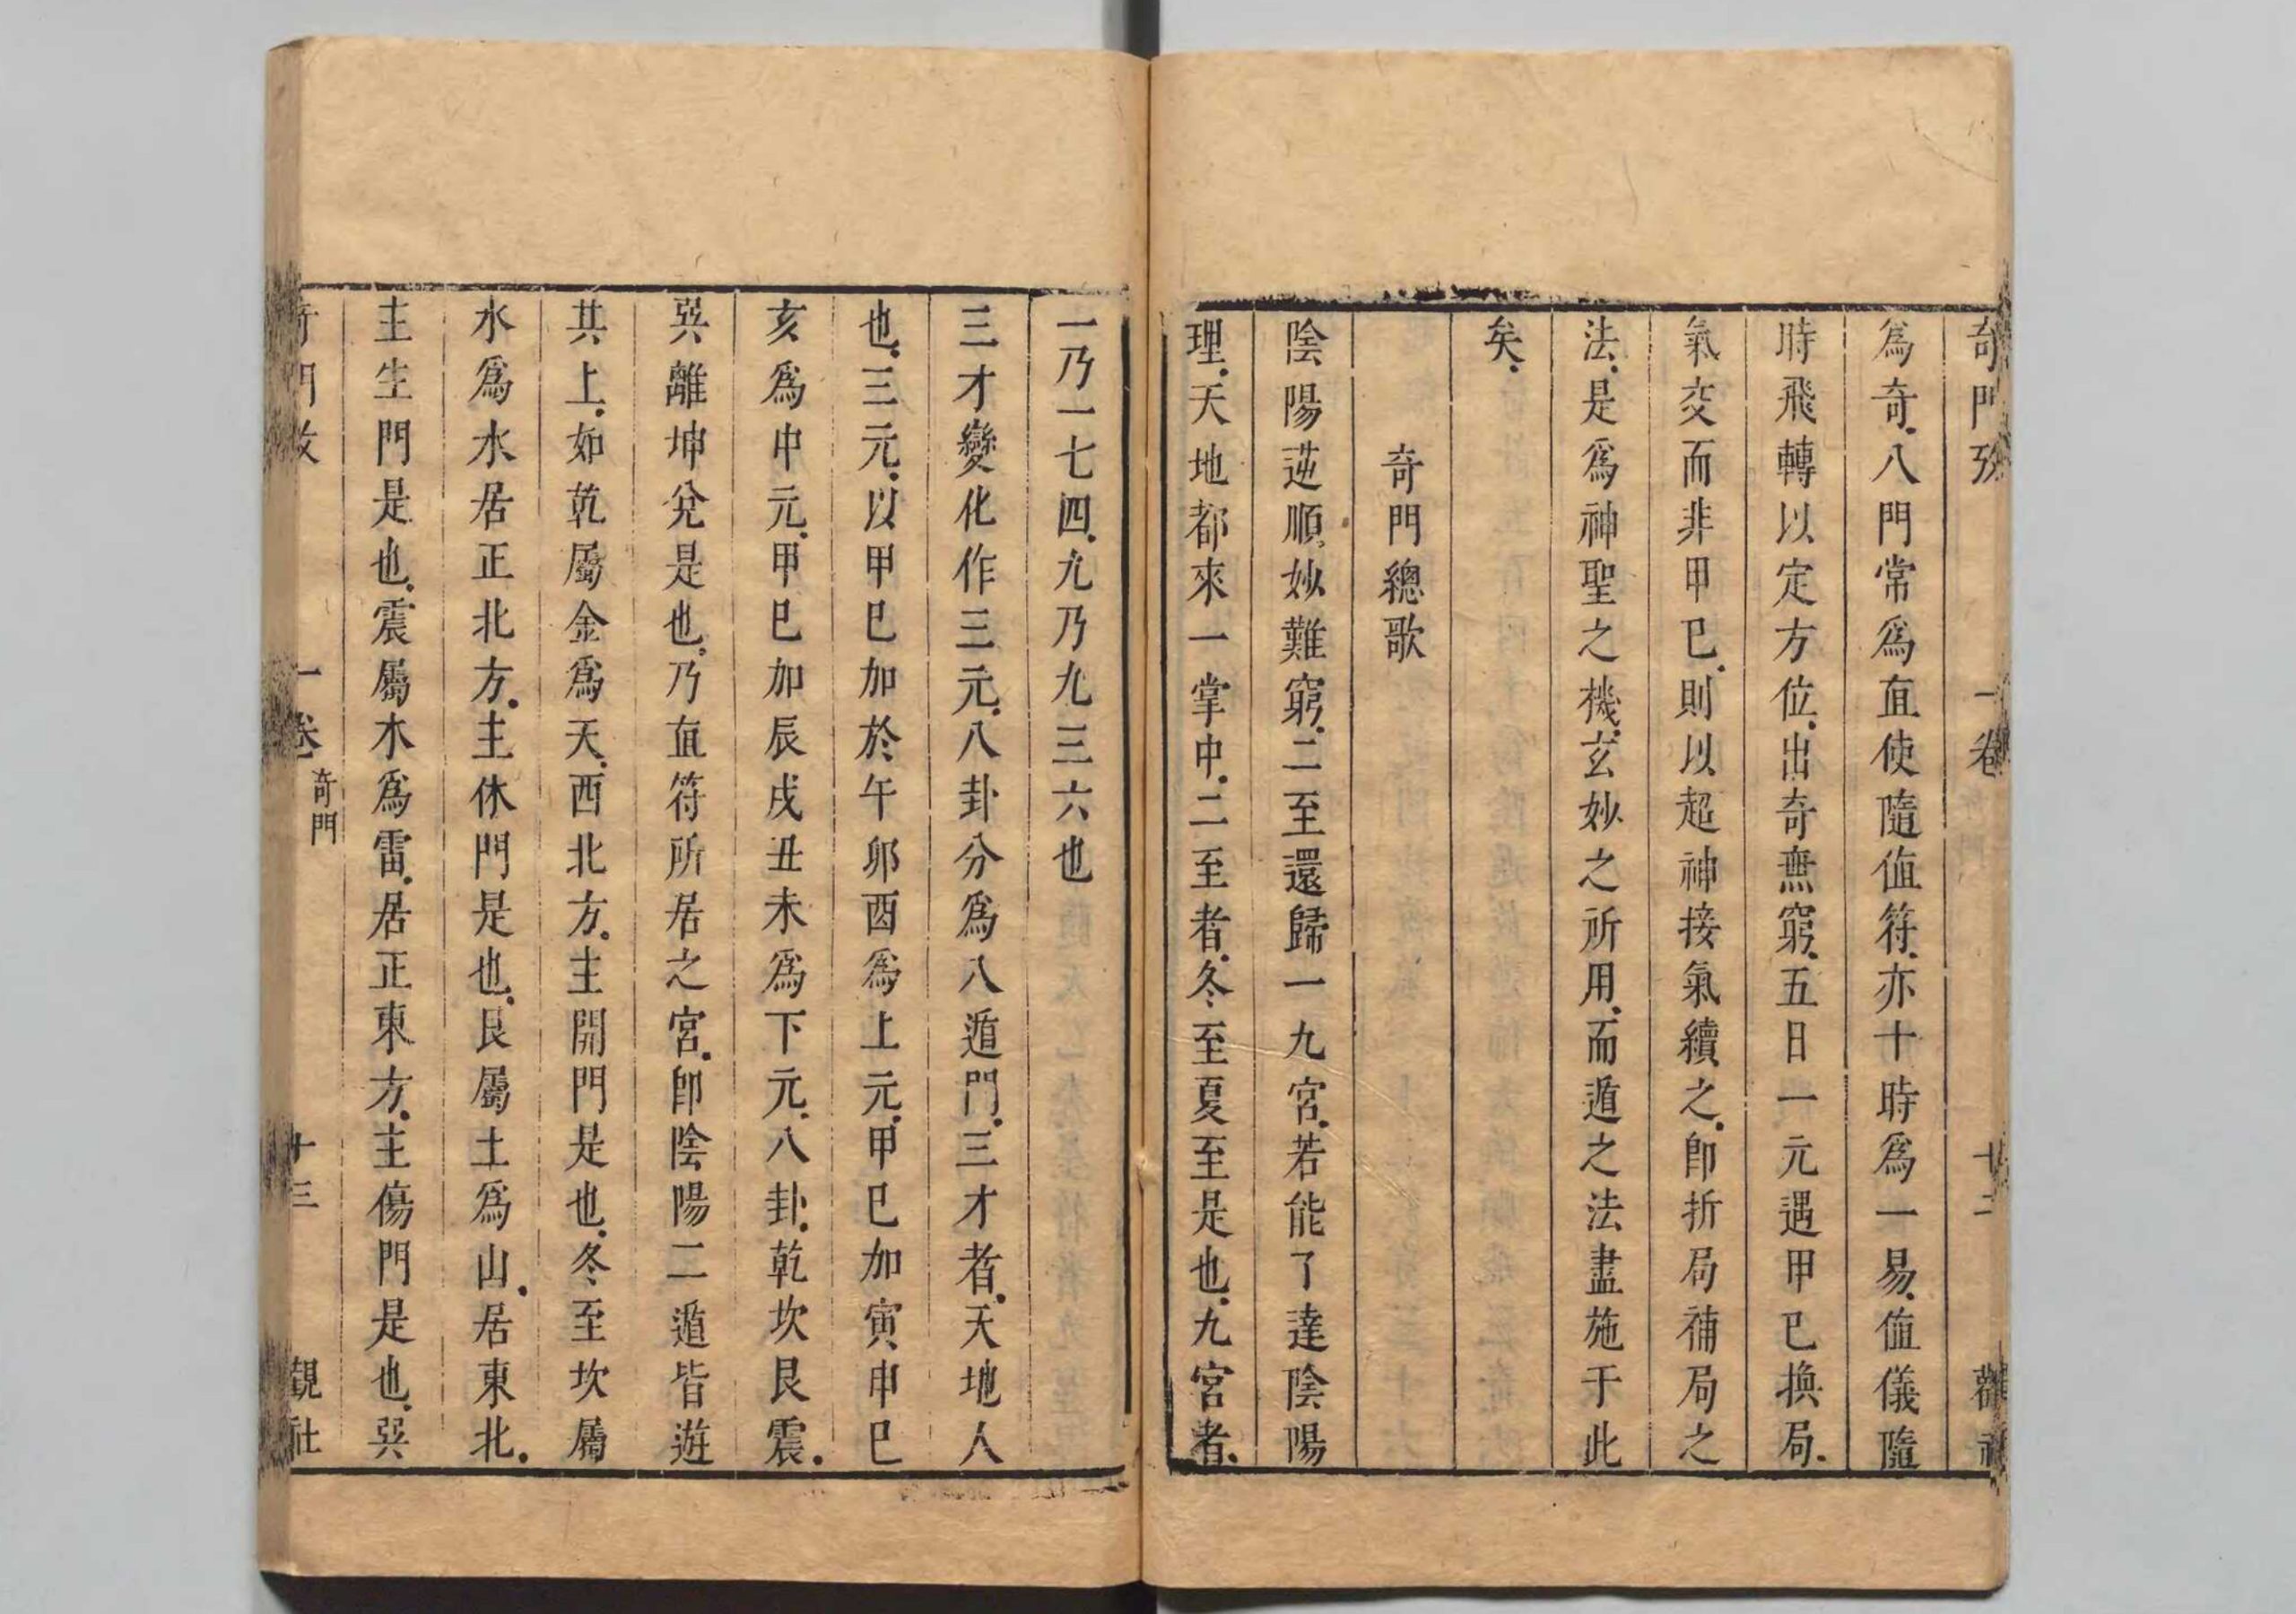 奇門攷 一卷 十二
為奇八門常爲直使隨値符亦十時爲一易値儀隨
時飛轉以定方位出奇無窮五日一元遇甲已換局
氣交而非甲已則以超神接氣續之卽折局補局之
法是爲神聖之機玄妙之所用而遁之法盡施于此
矣
奇門總歌
陰陽逆順妙難窮二至還歸一九宮若能了達陰陽
理天地都來一掌中二至者冬至夏至是也九宮者
一乃一七四九乃九三六也
三才變化作三元八卦分爲八遁門三才者天地人
也三元以甲巳加於午卯酉爲上元甲巳加寅申巳
亥爲中元甲巳加辰戌丑未爲下元八卦乾坎艮震
巽離坤兌是也乃直符所居之宮卽陰陽二遁皆遊
其上如乾屬金爲天西北方主開門是也冬至坎屬
水爲水居正北方主休門是也艮屬土爲山居東北
主生門是也震屬木爲雷居正東方主傷門是也巽
奇門攷 一卷 奇門 十三 觀社